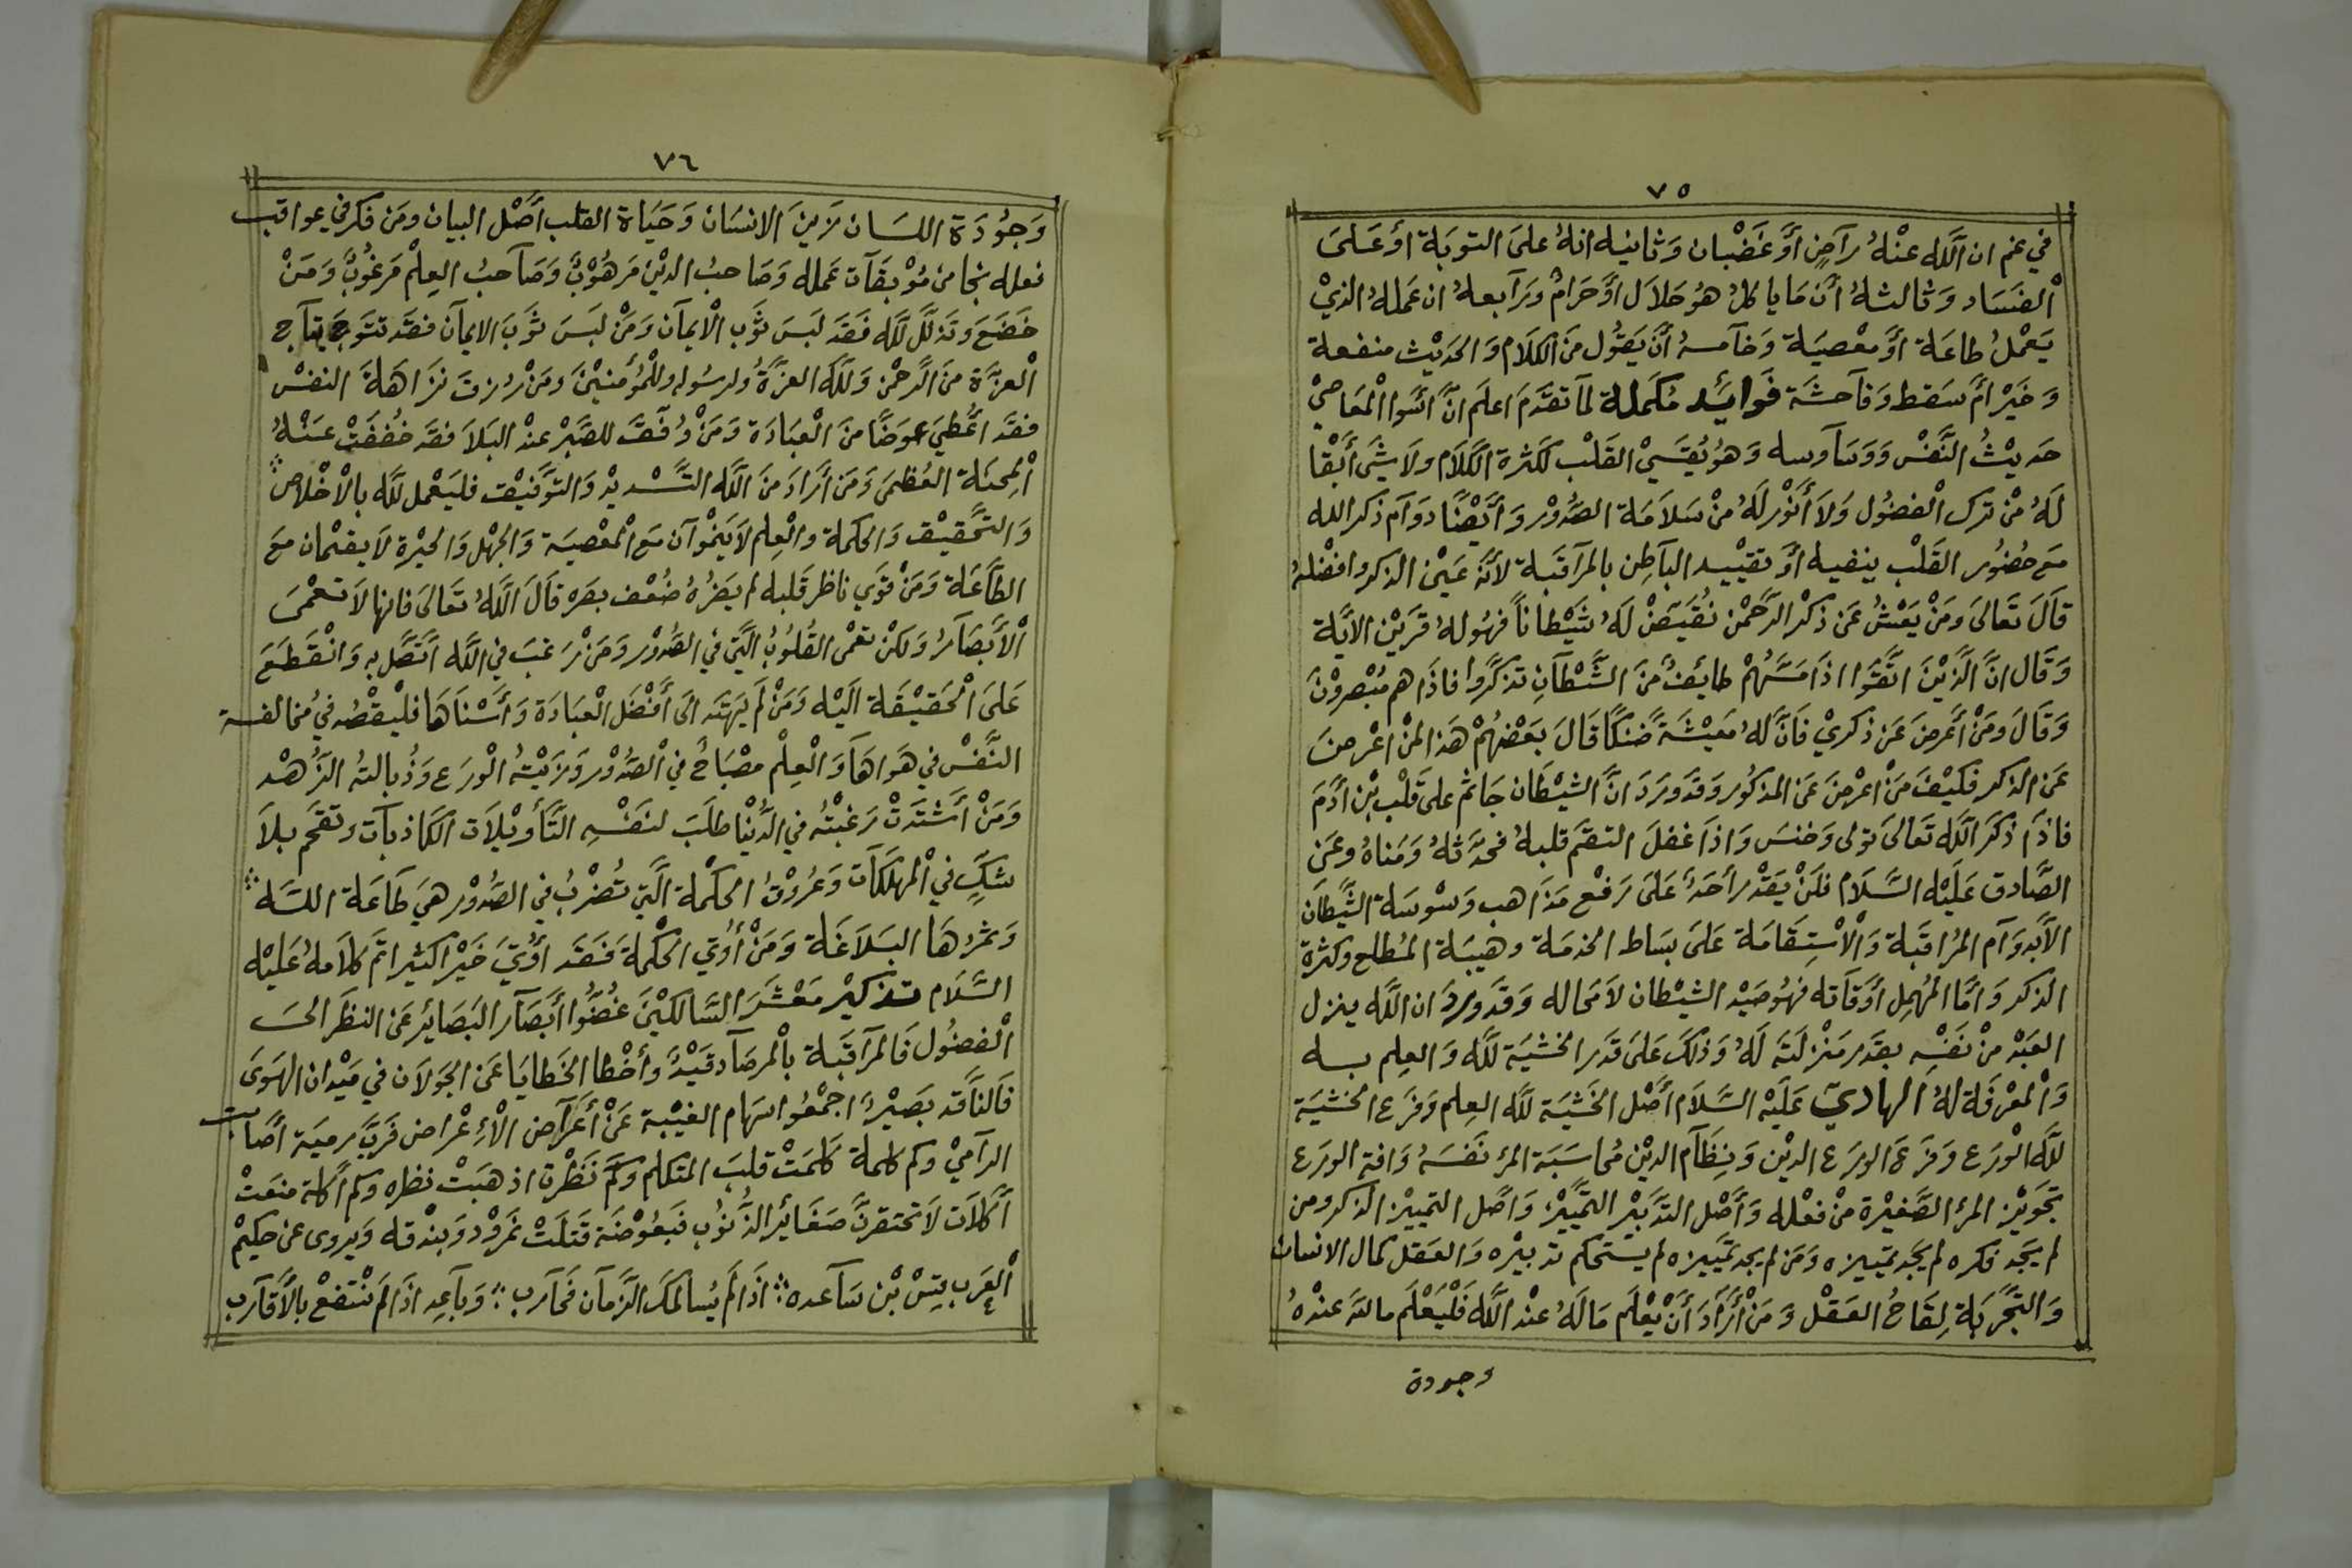 ٧٥
في غم ان اللّٰه عنْهُ راضٍ أوْ غَضْبان وَثانيه انهُ علىَ التوبَة اوْ عَلىَ
الْفسَاد وَثالثهُ أن مَا ياكلُ هُو حَلاَل أوْ حَرامٌ وَرَابعهُ ان عَملهُ الذيْ
يَعْملُ طاعَة أوْ معْصيَة وَخامسهُ أنْ يَقُول منَ الكلاَم وَالحَديْث منفعة
وَخَيْر امْ سَقط وَفاحشَة فَوايَد مكَملة لمَا تقدَمَ اعلَم انَّ اسْوا المْعَاصيْ
حَديْثُ النَّفسْ وَوَسَاوسه وَهوُ يُقسَيْ القَلْب لكَثرة الكَلاَم ولاَ شَىْ أنْقا
لَهُ منْ ترك الْفضوُل وَلاَ أنوْر لَهُ منْ سَلاَمَة الصُّدوْر وَأيْضًا دوَام ذكر الله
معَ حضُور القَلْب ينفيه أوْ تقيْيد البَاطِن بالمرَاقبَة لأنهَ عَيْن الذكر وافضْلهُ
قاَلَ تَعَالىَ ومَنْ يَعْشُ عَن ذكْر الرَّحمْن نُقيَضْ لَهُ شَيْطاناً فهُو لهُ قَرَيْن الايَة
وَقَال انَّ الَّذيْنَ اتقَوا اذاَ مَسَّهُمْ طايفٌ منَ الشَّيْطَانِ تذكرَّوا فاذَا هم مُبْصروْنَ
وَقَالَ ومَنْ أعْرضَ عَن ذكريْ فَانَّ لهُ مَعيْشَةً ضَنكًا قَالَ بَعْضهُمْ هَذا لمنْ اعْرضَ
عَن الذكر فكيْفَ مَنْ اعْرضَ عَن المذكوُر وَقدَ ورَدَ انَّ الشيْطَان جَاثم على قَلْب بْن ادَمَ
فاذَا ذكَرَ اللّٰه تَعَالىَ تولى وَخنسَ وَاذاَ غفلَ التقمَ قلبهُ فحدَّثهُ وَمَناهُ وعَن
الصَّادق عَليْه السَّلاَم فلَنْ يَقدْر أحَدٌ عَلىَ رَفْع مَذاهب وَسْوسَة الشَّيطَان
الاَّ بدوَام المُرَاقبَة وَالاْسْتِقامَة عَلىَ بسَاط الخدمَة وهيبَة المُطلع وَكثرة
الذكر وَامَّا المُهمل أوْقاته فهُو صَيْد الشيْطان لاَ مَحاله وَقدَ ورَدَ ان اللّٰه ينزل
العَبْد منْ نَفسْه بقدَر مَنْزلتَه لَهُ وَذلكَ عَلىَ قدَر الخشيَة للّٰه وَالعِلم به
وَالْمعرْفَة لهُ الهَاديْ عَليْه السَّلاَم أصْل الخَشْيَة للّٰه العِلم وَفرْع الخشيَة
للّٰه الوْرَع وَفرْع الورَع الديْن وَنِظَام الديْن مُحاسَبَة المرْ نَفسَهُ وَافة الورَع
تجَويْز المرْ الصَّغيْرة منْ فعْله وَأصْل التدَبيْر التمَّييْزْ وَاصْل التمييْز الذكر ومن
لم يَجد فكره لم يَجَد تميْيزه وَمَن لم يجد تمَّييزه لم يستَحكم تدبيْره وَالعَقل كمال الانسان
وَالتَّجْربَة لِقَاحُ العَقْل وَمَنْ أرَادَ أنْ يْعلَم مَا لَهُ عنْد اللّٰه فَلْيَعْلَم ما للهَ عندْهُ
وجودة
٧٦
وَجوُدَة اللسَان زَيْن الانسَان وَحَيَاة القلب أصْل البيان ومَن فكر في عواقب
فعله نجا من مُوْبقَات عَمله وَصَاحبُ الديْن مَرهُوْبٌ وَصَاحبُ العِلْم مَرغوُبٌ وَمَنْ
خَضَعَ وَتذللَّ للّٰه فَقدَ لَبسَ ثوَب الاْيمَان وَمَنْ لَبَسَ ثوَبَ الايمَان فقدَ تتَوجَ بتَاج
الْعزَّة منَ الرَّحْمن وَللَّه العزَّةُ ولرسُوله وللْمُؤْمنيْنَ ومَنْ رُزقَ نزَاهَةَ النفسْ
فقدَ اعُّطيَ عوَضًا منَ الْعبَادَة وَمَنْ وُفقَ للصَّبْر عنْد البَلاَ فقدَ خُففَتْ عَنْهُ
الْمِحنَة العُظمىَ وَمَن أرَادَ منَ اللّٰه التَّسْديْد وَالتوَّفيْق فليَعْمل للّٰه بالاْخْلاص
وَالتَّحقيْق وَالحكمة والْعِلم لاَ يَنْموَان مَع الْمعْصيَة وَالجهْل وَالحيْرة لاَ يقيْمان معَ
الطَاعَة وَمَنْ قوَي ناظر قَلبه لم يضَرُهُ ضُعْف بصَره قاَلَ اللّٰهُ تَعَالىَ فانها لاَ تعْمىَ
الْأبْصَارُ وَلكنْ تعْمى القُلوُبُ الَّتيْ في الصُّدوْر وَمَنْ رَغبَ في اللّٰه اتَّصَل به وَانْقطَعَ
عَلىَ الْحَقيْقَة اليْه وَمَنْ لمَ يَهتَد الىَ أفْضَل الْعبَادَة وَأسْناهَا فليْقصْد في مخالفة
النَّفسْ في هَواهَا وَالْعِلْم مصْبَاحٌ في الْصُّدوْر وَزَيْتُهُ الْورَع وَذُبالتهُ الزُّهْد
وَمَنْ أشتْدَتْ رَغبْتُه في الدُّنيْا طلَبَ لنَفسْه التَّأوْيْلاَت الكَاذبَات وتقحَم بلاَ
شكٍّ في الْمهلكَات وَعُروْقُ الحكمْة الَّتيْ تُضْربُ في الصُّدوْر هيَ طَاعَة اللّه
وَثمرُهَا البَلاَغَة وَمَنْ أوُتيَ الحكْمة فَقدَ أوْتيَ خَيْرا كثيرا تمَ كلاَمهُ عَليْه
السَّلاَم تذكيْر مَعْشَرَ السَّالكيْنَ غُضُّوا أبْصَار البَصَائِر عَن النظَر الىَ
الْفضوُل فَالمرَاقبَة بالْمرصَاد قَيْدٌ وَأخْطا الخَطايَا عَن الجوَلاَن في مَيْدان الهَوىَ
فَالنَّاقد بصَيْرٌ اجْمعُوا سهَام الغيْبة عَنْ أعْرَاض الأعْراض فَربَّ رميَة أصَابت
الرَاميْ وَكم كلمة كلمَتْ قلبَ المتكلم وكَم نَظْرة اذهبَتْ نظره وَكم أكلة منعَتْ
أكلاَت لاَ تحتقرنَّ صغَائر الذُّنوُب فَبَعُوْضَة قتَلَتْ نَمرُوْد وَبندْقه وَيروى عن حكيْم
الْعرَب قسْ بْن سَاعده ∴ اذَا لَم يُسالمكَ الزَّمان فَحارب ∴ وَبَاعِد اذَا لَم نْنتفعْ بالأقَارب